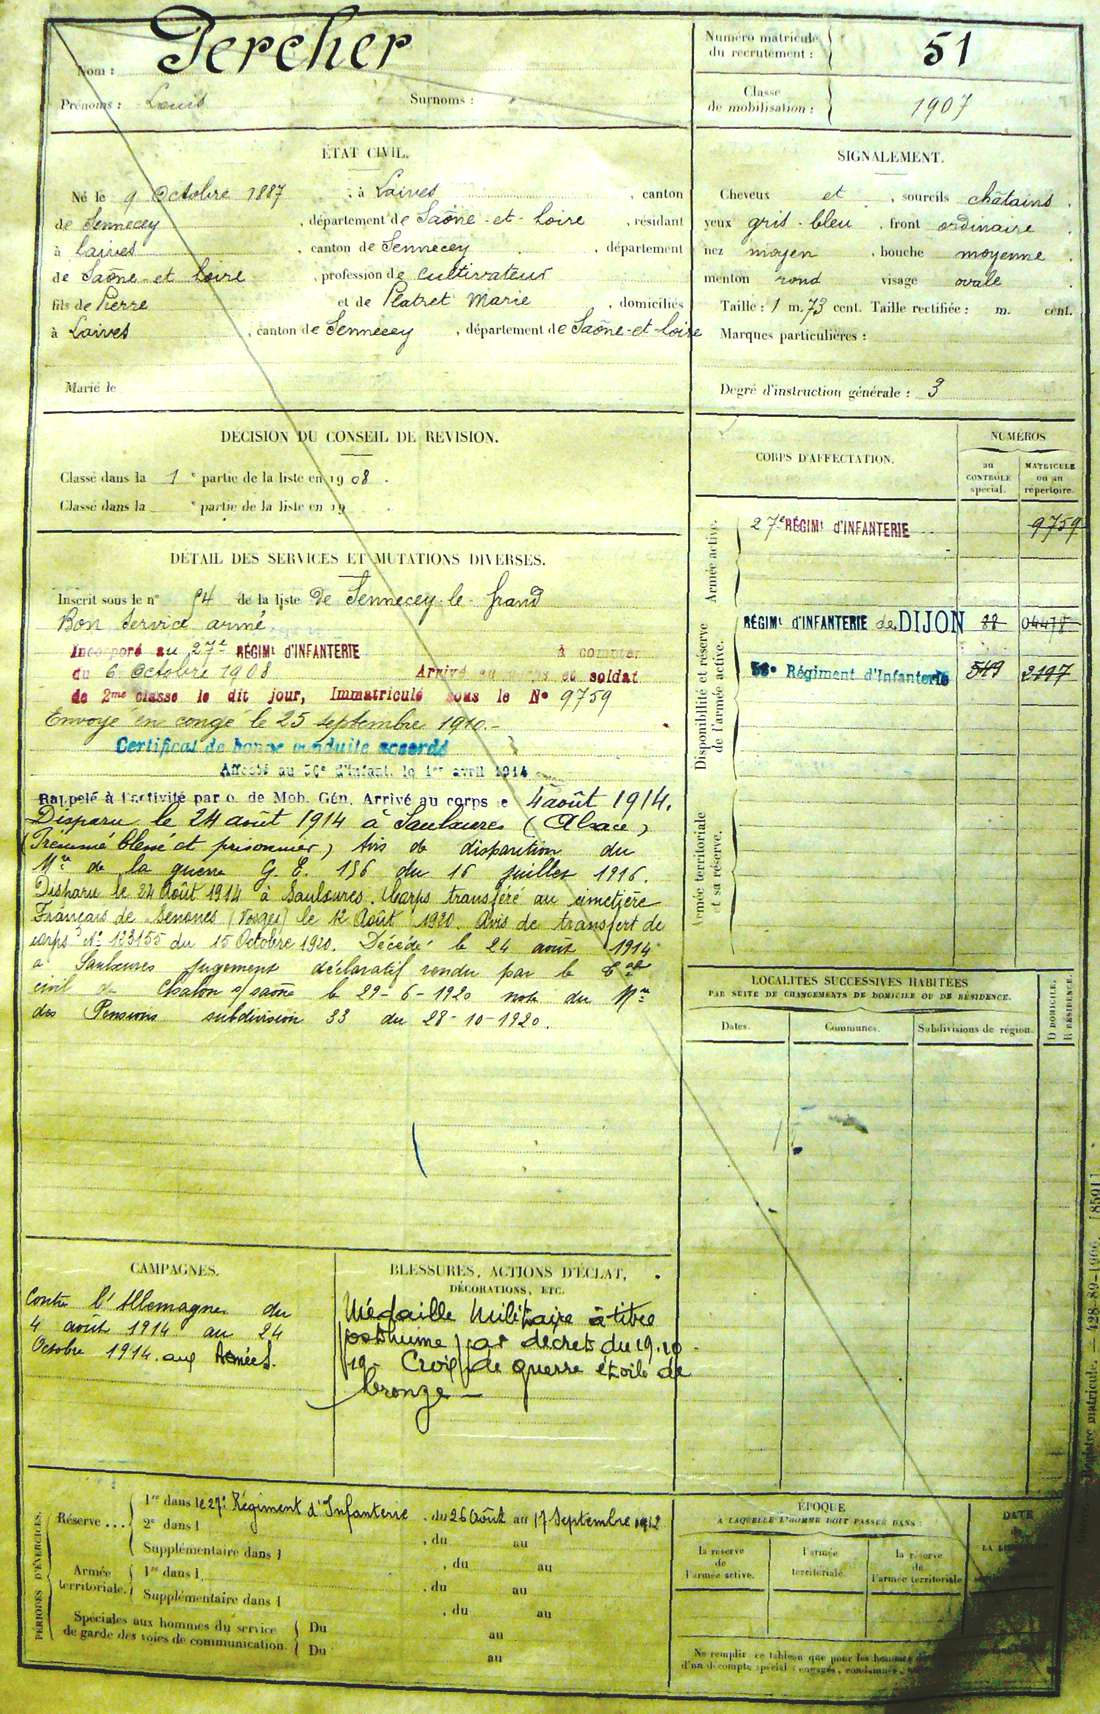 Nom : Percher
Prénoms : Louis Surnoms :
Numéro matricule du recrutement : 51
Classe de mobilisation : 1907
ÉTAT CIVIL.
Né le 9 Octobre 1887, à Laives, canton
de Sennecey, département de Saône-et-Loire, résidant
à Laives, canton de Sennecey, département
de Saône-et-Loire, profession de cultivateur
fils de Pierre et de Platret Marie, domiciliés
à Laives, canton de Sennecey, département de Saône-et-Loire
Marié le
SIGNALEMENT.
Cheveux et, sourcils châtains.
yeux gris-bleu, front ordinaire.
nez moyen, bouche moyenne.
menton rond visage ovale.
Taille : 1 m. 73 cent. Taille rectifiée : m. cent.
Marques particulières :
Degré d'instruction générale : 3
DÉCISION DU CONSEIL DE RÉVISION.
Classé dans la 1e partie de la liste en 1908.
Classé dans la e partie de la liste en 19
DÉTAIL DES SERVICES ET MUTATIONS DIVERSES.
Inscrit sous le n° 54 de la liste de Sennecey-le-Grand
Bon service armé
Incorporé au 27e RÉGIMt D'INFANTERIE à compter
du 6 Octobre 1908 Arrivé au corps et soldat
de 2me classe le dit jour, Immatriculé sous le N° 9759
Envoyé en congé le 25 septembre 1910.-
Certificat de bonne conduite accordé
Affecté au 56e d'Infant. le 1er avril 1914
Rappelé à l'activité par o. de Mob. Gén. Arrivé au corps le 4 août 1914.
Disparu le 24 août 1914 à Saulxures (Alsace)
(Présumé blessé et prisonnier) Avis de disparition du
Mre de la guerre G E. 156 du 16 juillet 1916.
Disparu le 24 Août 1914 à Saulxures. Corps transféré au cimetière
Français de Senones (Vosges) le 12 Août 1920. Avis de transfert de
corps N° 123155 du 15 Octobre 1920. Décédé le 24 août 1914
a Saulxures jugement déclaratif rendu par le Tal
civil de Chalon s/saône le 29-6-1920 note du Mre
des Pensions subdivision 33 du 28-10-1920.
CORPS D'AFFECTATION.
NUMÉROS
au CONTRÔLE spécial.
MATRICULE ou au répertoire.
Armée active.
27e RÉGIMt D'INFANTERIE 9759
Disponibilité et réserve de l'armée active.
RÉGIMt D'INFANTERIE de DIJON 88 04478
56e Régiment d'Infanterie 549 2197
Armée territoriale et sa réserve.
LOCALITÉS SUCCESSIVES HABITÉES
PAR SUITE DE CHANGEMENTS DE DOMICILE OU DE RÉSIDENCE.
Dates. Communes. Subdivisions de région.
D DOMICILE.
R RÉSIDENCE.
CAMPAGNES.
Contre l'Allemagne du
4 août 1914 au 24
Octobre 1914. aux Armées.
BLESSURES, ACTIONS D'ÉCLAT,
DÉCORATIONS, ETC.
Médaille Militaire à titre
posthume par décret du 19.10
19 - Croix de guerre étoile de
bronze -
PÉRIODES D'EXERCICES.
Réserve ... 1re dans le 27e Régiment d'Infanterie, du 26 Août au 17 Septembre 1912
2e dans l , du au
Supplémentaire dans l , du au
Armée territoriale. 1re dans l , du au
Supplémentaire dans l , du au
Spéciales aux hommes du service de garde des voies de communication. Du au
Du au
ÉPOQUE
À LAQUELLE L'HOMME DOIT PASSER DANS :
la réserve de l'armée active.
l'armée territoriale.
la réserve de l'armée territoriale
DATE
Ne remplir ce tableau que pour les hommes
d'un décompte spécial : engagés, condamnés,
Registre matricule. — 428-89-1906. [8591]